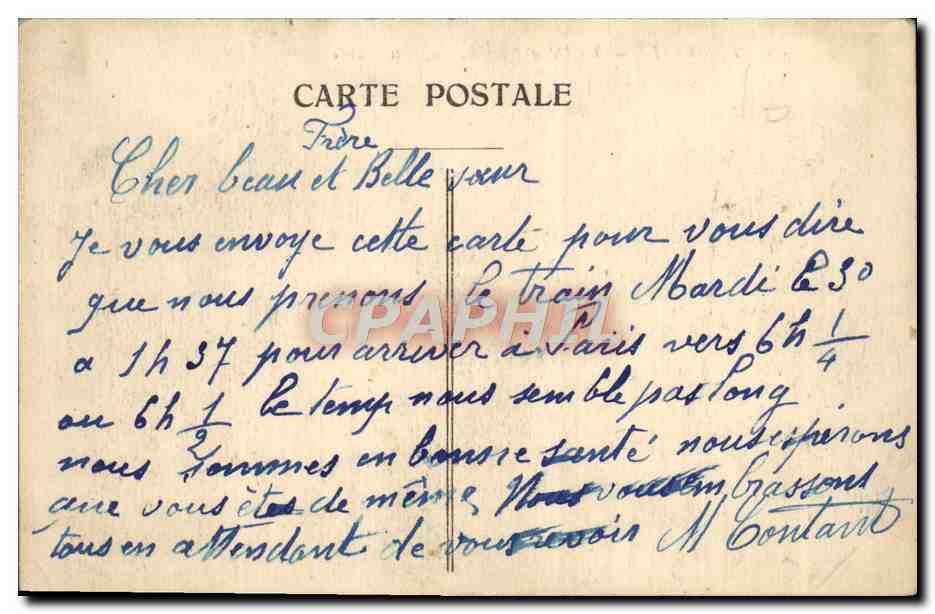 CARTE POSTALE
Frère
Cher beau et Belle sœur
Je vous envoye cette carte pour vous dire
que nous prenons le train Mardi le 30
a 1h37 pour arriver à Paris vers 6h 1/4
ou 6h 1/2 le temp nous semble pas long
nous sommes en bonne santé nous espérons
que vous êtes de même Nous vous embrassons
tous en attendant de vous revoir M Contant
CPAPHIL